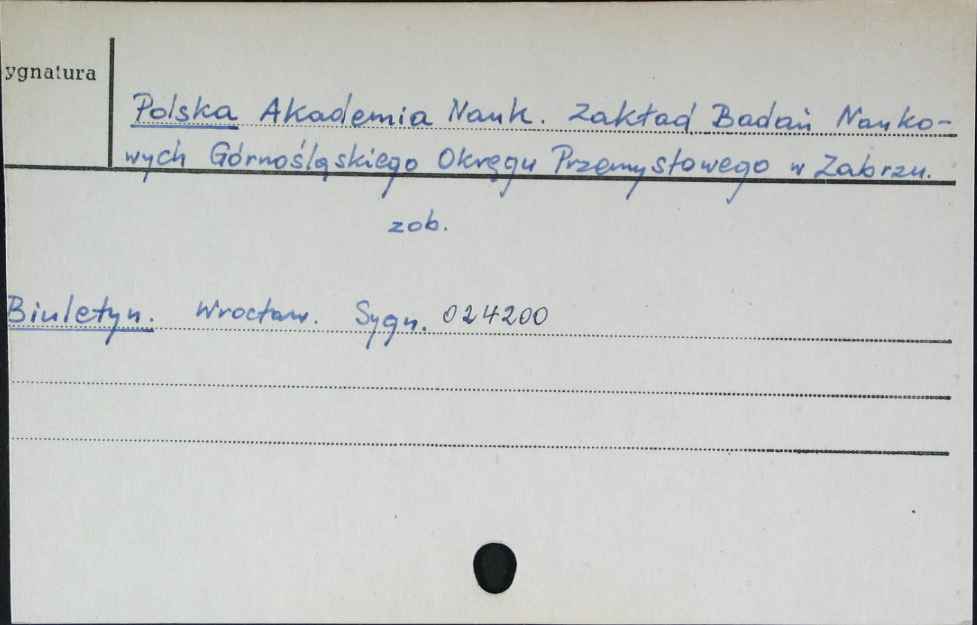 ygnatura
Polska Akademia Nauk. Zakład Badań Nauko-
wych Górnośląskiego Okręgu Przemysłowego w Zabrzu.
zob.
Biuletyn. Wrocław. Sygn. 024200